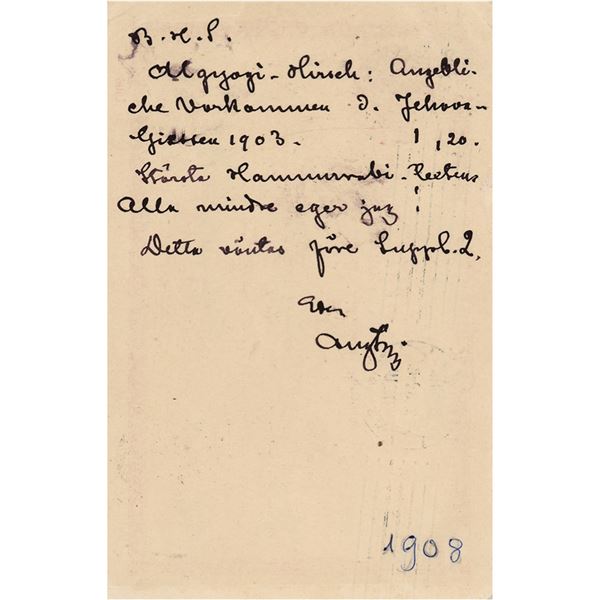 B. H. S.
Algyogi-Hirsch: Angebli-
che Vorkommen d. Jehova-
Giessen 1903. 1,20.
Största Hammurabi-Texten
Alla mindre eger jag!
Detta väntas före Suppl. 2.
Eder
1908